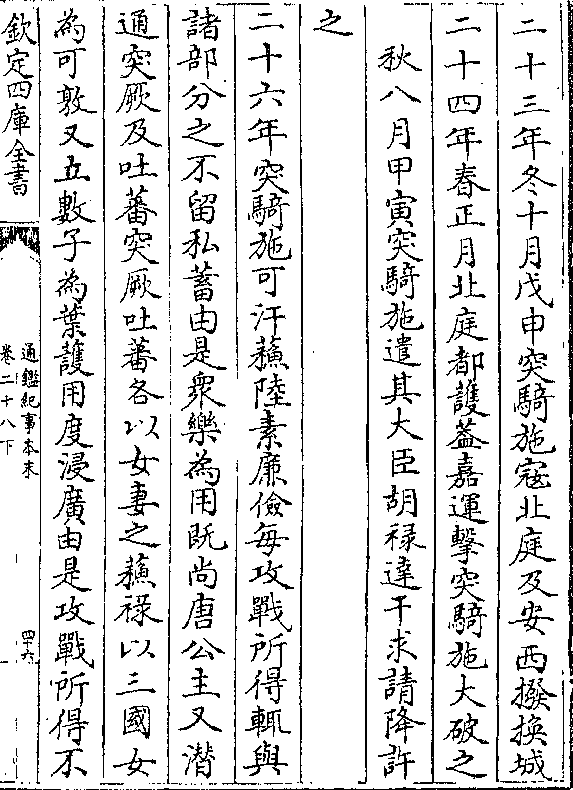 二十三年冬十月戊申突騎施寇北庭及安西撥換城
二十四年春正月北庭都護蓋嘉運擊突騎施大破之
秋八月甲寅突騎施遣其大臣胡祿達干求請降許
之
二十六年突騎施可汗蘇陸素廉儉每攻戰所得輒與
諸部分之不留私蓄由是衆樂為用既尚唐公主又潛
通突厥及吐蕃突厥吐蕃各以女妻之蘇祿以三國女
為可敦又立數子為葉護用度浸廣由是攻戰所得不
欽定四庫全書
通鑑紀事本末
卷二十八下
四十六